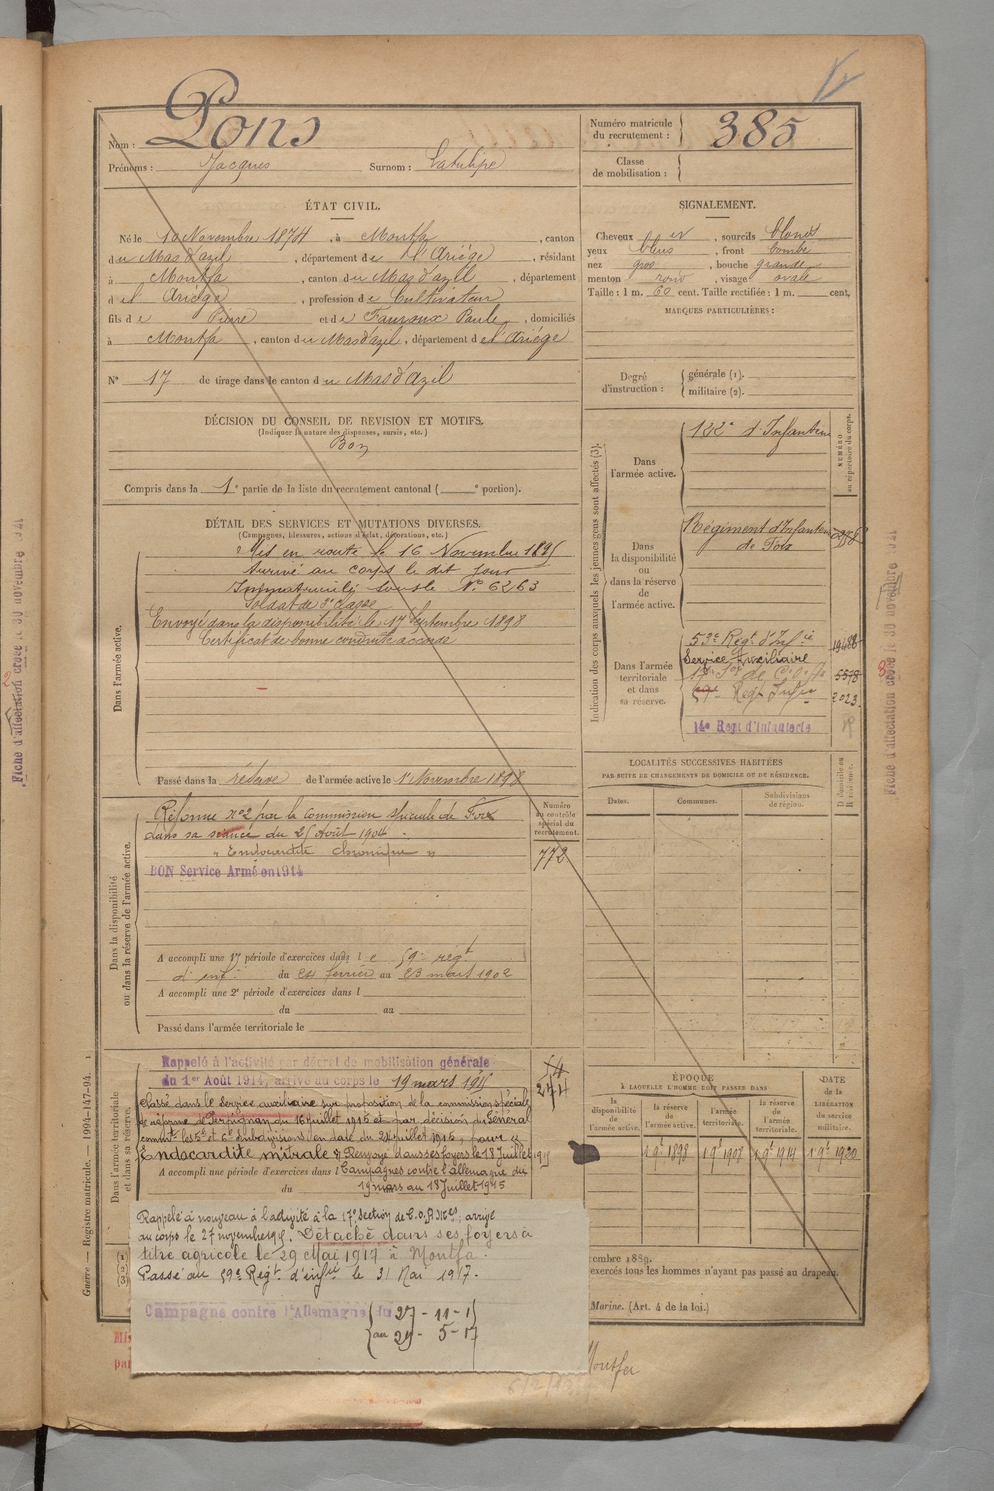 Nom : Pons
Prénoms : Jacques Surnom : Latulipe
Numéro matricule du recrutement : 385
Classe de mobilisation :
ÉTAT CIVIL.
Né le 10 Novembre 1874, à Montfa, canton
du Mas d'azil, département de l'Ariège, résidant
à Montfa, canton du Mas d'azil, département
d el Ariège, profession de Cultivateur
fils de Pierre et de Fauroux Paule, domiciliés
à Montfa, canton du Mas d'azil, département de l'Ariège
N° 17 de tirage dans le canton du Mas d'Azil
SIGNALEMENT.
Cheveux et, sourcils blonds
yeux bleus, front bombé
nez gros, bouche grande
menton rond, visage ovale
Taille : 1 m. 60 cent. Taille rectifiée : 1 m. cent.
MARQUES PARTICULIÈRES :
Degré d'instruction : générale (1).
militaire (2).
DÉCISION DU CONSEIL DE REVISION ET MOTIFS.
(Indiquer la nature des dispenses, sursis, etc.)
Bon
Compris dans la 1e partie de la liste du recrutement cantonal ( e portion).
DÉTAIL DES SERVICES ET MUTATIONS DIVERSES.
(Campagnes, blessures, actions d'éclat, décorations, etc.)
Dans l'armée active.
Mis en route le 16 Novembre 1895
Arrivé au corps le dit jour
Immatriculé sous le N° 6263
Soldat de 2e classe
Envoyé dans la disponibilité le 17 Septembre 1898
Certificat de bonne conduite accordé
Passé dans la réserve de l'armée active le 1er Novembre 1898
Indication des corps auxquels les jeunes gens sont affectés (3).
NUMÉRO au répertoire du corps.
Dans l'armée active.
122e d'Infanterie
Dans la disponibilité ou dans la réserve de l'armée active.
Régiment d'Infanterie
de Foix
Dans l'armée territoriale et dans sa réserve.
53e Regt d'Infie 19486
Service Auxiliaire
17e Son de C.O.A. 5578
59e Regt Infie 2023
14e Regt d'Infanterie
LOCALITÉS SUCCESSIVES HABITÉES
PAR SUITE DE CHANGEMENTS DE DOMICILE OU DE RÉSIDENCE.
Dates. Communes. Subdivisions de région. D domicile ou R résidence.
Dans la disponibilité ou dans la réserve de l'armée active.
Numéro au contrôle spécial du recrutement.
772
Réforme n°2 par la Commission Spéciale de Foix
dans sa séance du 25 Août 1904.
"Endocardite chronique"
BON Service Armé en 1914
A accompli une 1re période d'exercices dans le 59e régt
d'inf. du 24 février au 23 mars 1902
A accompli une 2e période d'exercices dans l
du au
Passé dans l'armée territoriale le
Dans l'armée territoriale et dans sa réserve.
Rappelé à l'activité par décret de mobilisation générale
du 1er Août 1914, arrivé au corps le 19 mars 1915
Classé dans le service auxiliaire sur proposition de la commission spéciale
de réforme de Perpignan du 16 juillet 1915 et par décision du Général
commt les 5e et 6e subdivisions en date du 24 juillet 1915, pour
Endocardite mitrale Renvoyé dans ses foyers le 18 Juillet 1915
A accompli une période d'exercices dans l Campagnes contre l'allemagne du
du 19 mars au 18 Juillet 1915
244
Rappelé à nouveau à l'activité à la 17e Section de C.O.A. Mres, arrivé
au corps le 27 novembre 1915. Détaché dans ses foyers à
titre agricole le 29 Mai 1917 à Montfa.
Passé au 59e Régt d'infie le 31 Mai 1917.
Campagne contre l'Allemagne du 27-11-15
au 29-5-17
ÉPOQUE
À LAQUELLE L'HOMME DOIT PASSER DANS
la disponibilité de l'armée active. la réserve de l'armée active. l'armée territoriale. la réserve de l'armée territoriale.
DATE DE LA LIBÉRATION du service militaire.
1 9bre 1898 1 9bre 1908 1 9bre 1914 1 9bre 1920
cembre 1889.
exercés tous les hommes n'ayant pas passé au drapeau.
Marine. (Art. 4 de la loi.)
Guerre. — Registre matricule. — 1994-147-94.
Fiche d'affectation créée le 30 novembre 1921
Fiche d'affectation créée le 30 novembre 1921